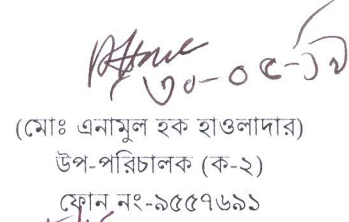 ৩০-০৫-১৯
(মোঃ এনামুল হক হাওলাদার)
উপ-পরিচালক (ক-২)
ফোন নং-৯৫৫৭৬৯১